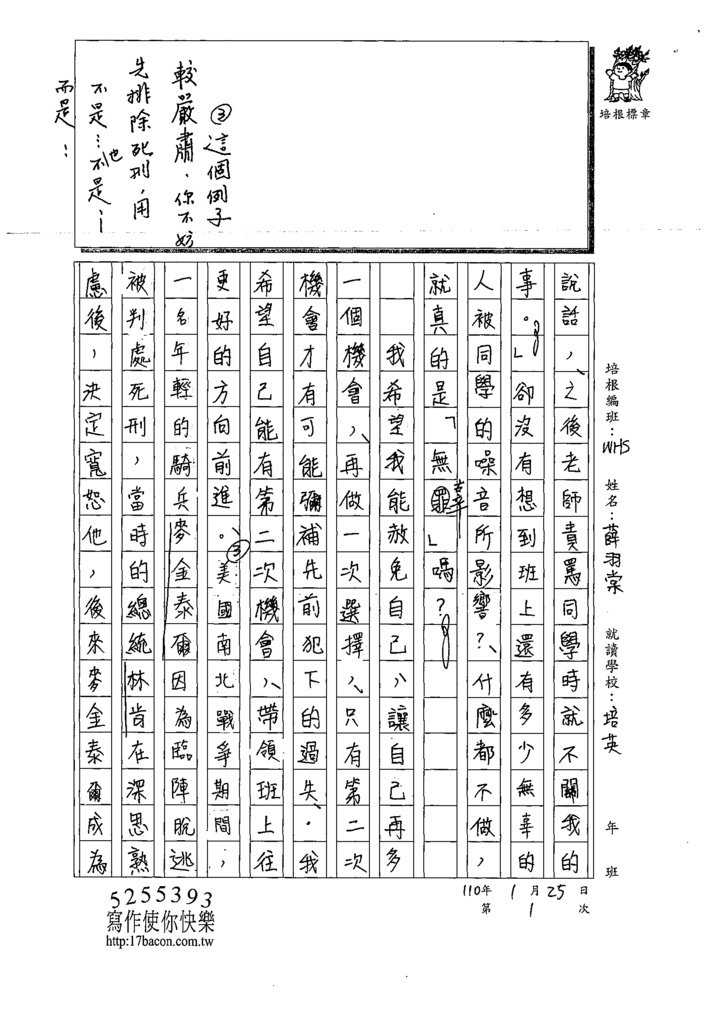 培根標章
③這個例子
較嚴肅,你不妨
先排除死刑,用
不是…也不是…
而是:
培根編班:WHS 姓名:薛羽棠 就讀學校:培英 年 班
說話,之後老師責罵同學時就不關我的
事。」卻沒有想到班上還有多少無辜的
人被同學的噪音所影響?什麼都不做,
就真的是「無罪」嗎?
辜
我希望我能赦免自己,讓自己再多
一個機會,再做一次選擇,只有第二次
機會才有可能彌補先前犯下的過失。我
希望自己能有第二次機會,帶領班上往
更好的方向前進。③美國南北戰爭期間,
一名年輕的騎兵麥金泰爾因為臨陣脫逃
被判處死刑,當時的總統林肯在深思熟
慮後,決定寬恕他,後來麥金泰爾成為
110年 1月25日
第 1 次
5255393
寫作使你快樂
http:17bacon.com.tw